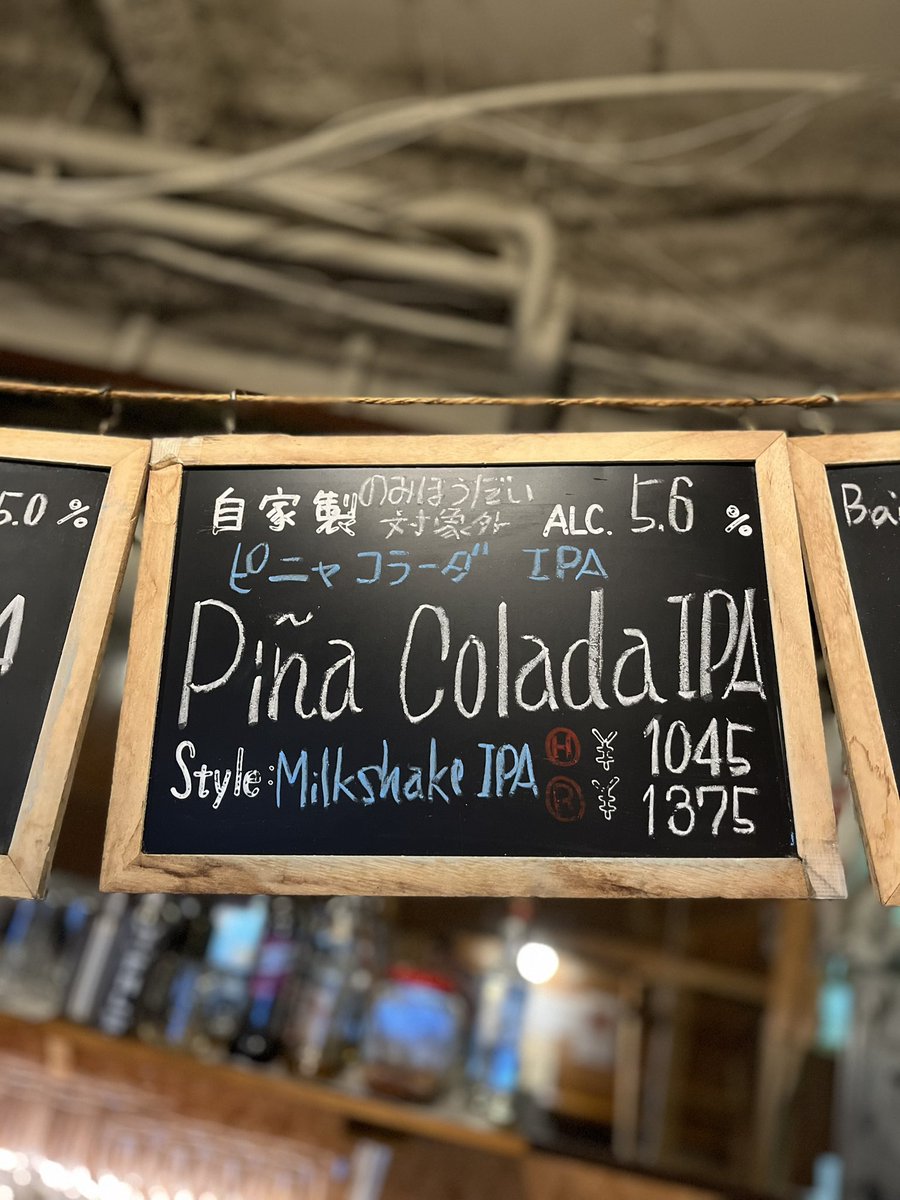 5.0 %
自家製 のみほうだい
対象外
ALC. 5.6 %
ピニャコラーダ IPA
Piña Colada IPA
Style: Milkshake IPA
Ⓗ ¥ 1045
Ⓡ ¥ 1375
Bai